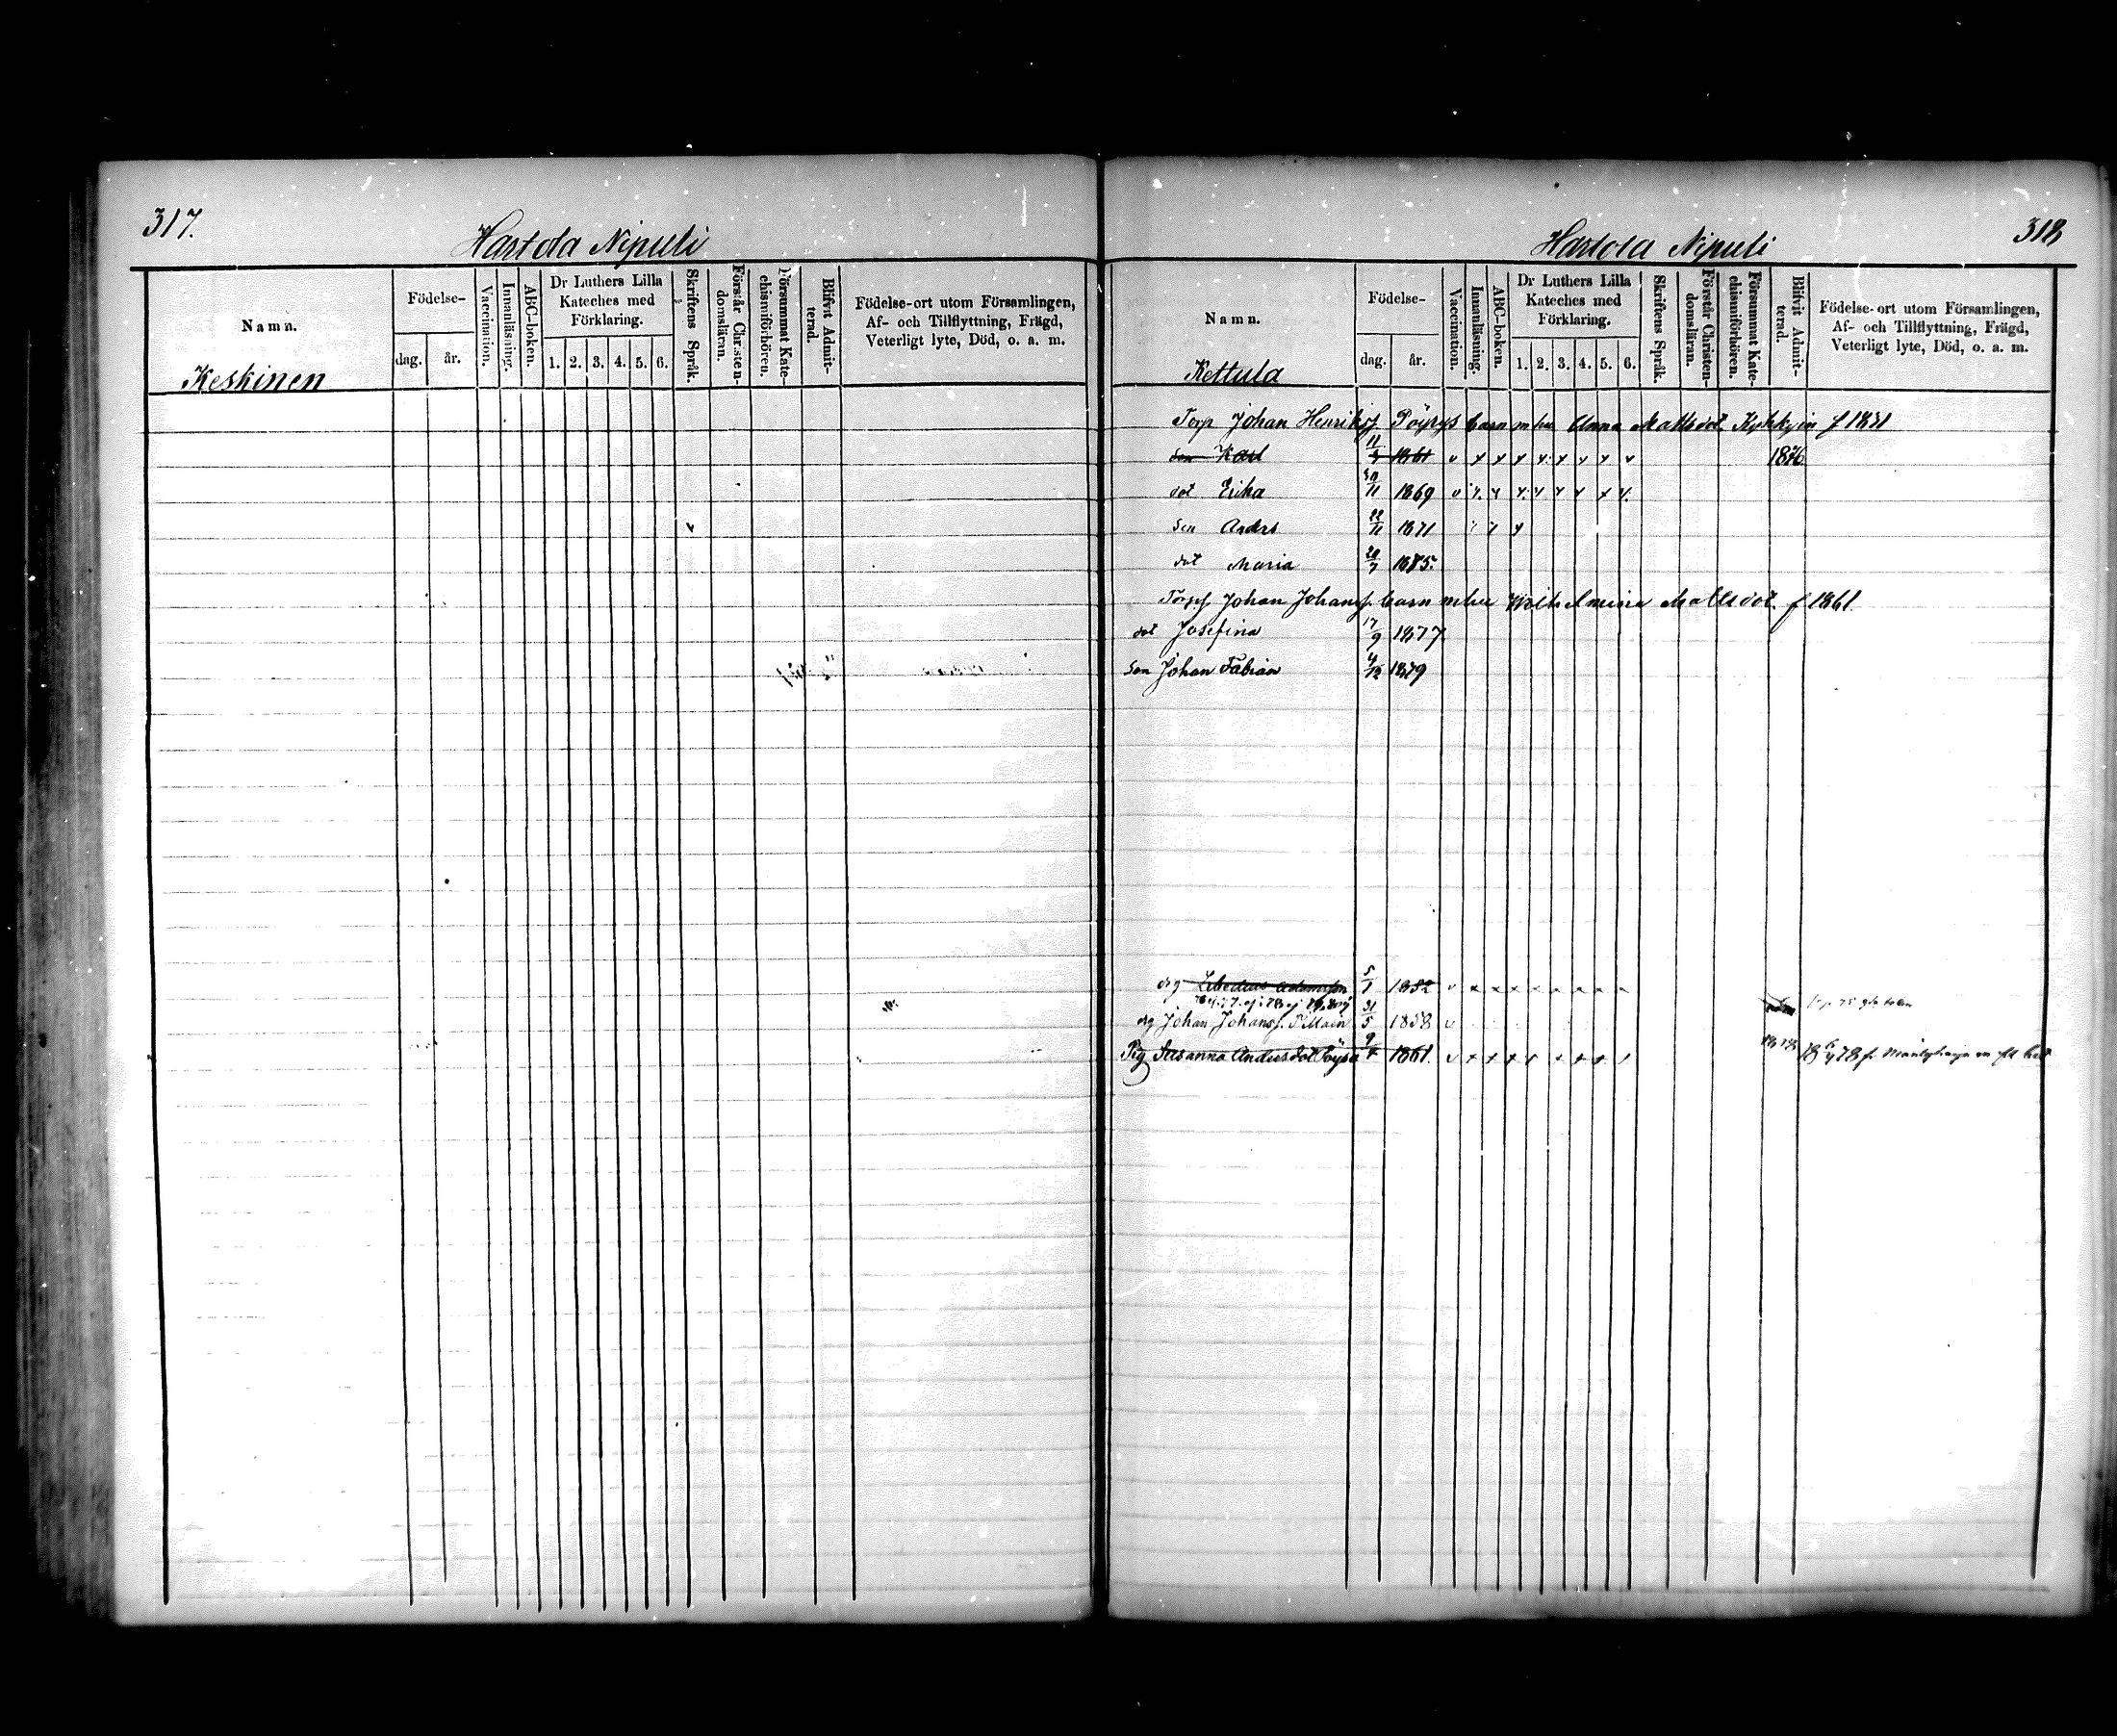 317.
Hartola Nipuli
Namn.
Födelse-
dag.
år.
Vaccination.
Innanläsning.
ABC-boken.
Dr Luthers Lilla
Kateches med
Förklaring.
1. 2. 3. 4. 5. 6.
Skriftens Språk.
Förstår Christen-
domsläran.
Försummat Kate-
chismiförhören.
Blifvit Admit-
terad.
Födelse-ort utom Församlingen,
Af- och Tillflyttning, Frägd,
Veterligt lyte, Död, o. a. m.
Keskinen
318
Hartola Nipuli
Namn.
Födelse-
dag.
år.
Vaccination.
Innanläsning.
ABC-boken.
Dr Luthers Lilla
Kateches med
Förklaring.
1. 2. 3. 4. 5. 6.
Skriftens Språk.
Förstår Christen-
domsläran.
Försummat Kate-
chismiförhören.
Blifvit Admit-
terad.
Födelse-ort utom Församlingen,
Af- och Tillflyttning, Frägd,
Veterligt lyte, Död, o. a. m.
Kettula
Torp Johan Henrikss. Pöyrys barn m hu Anna Mattsdot f 1831
son Karl 1861 1876
dot Erika 30/11 1869
son Anders 22/11 1871
dot Maria 1875.
Torps Johan Johanss. barn m hu Wilhelmina Mattsdot f 1861.
dot Josefina 17/9 1877
son Johan Fabian 4/12 1879
drg 5/1 1852
drg Johan Johanss. 31/5 1858
Pig Susanna Andersdot 1861. 1878 18 6/4 78 fr. Mäntyharju